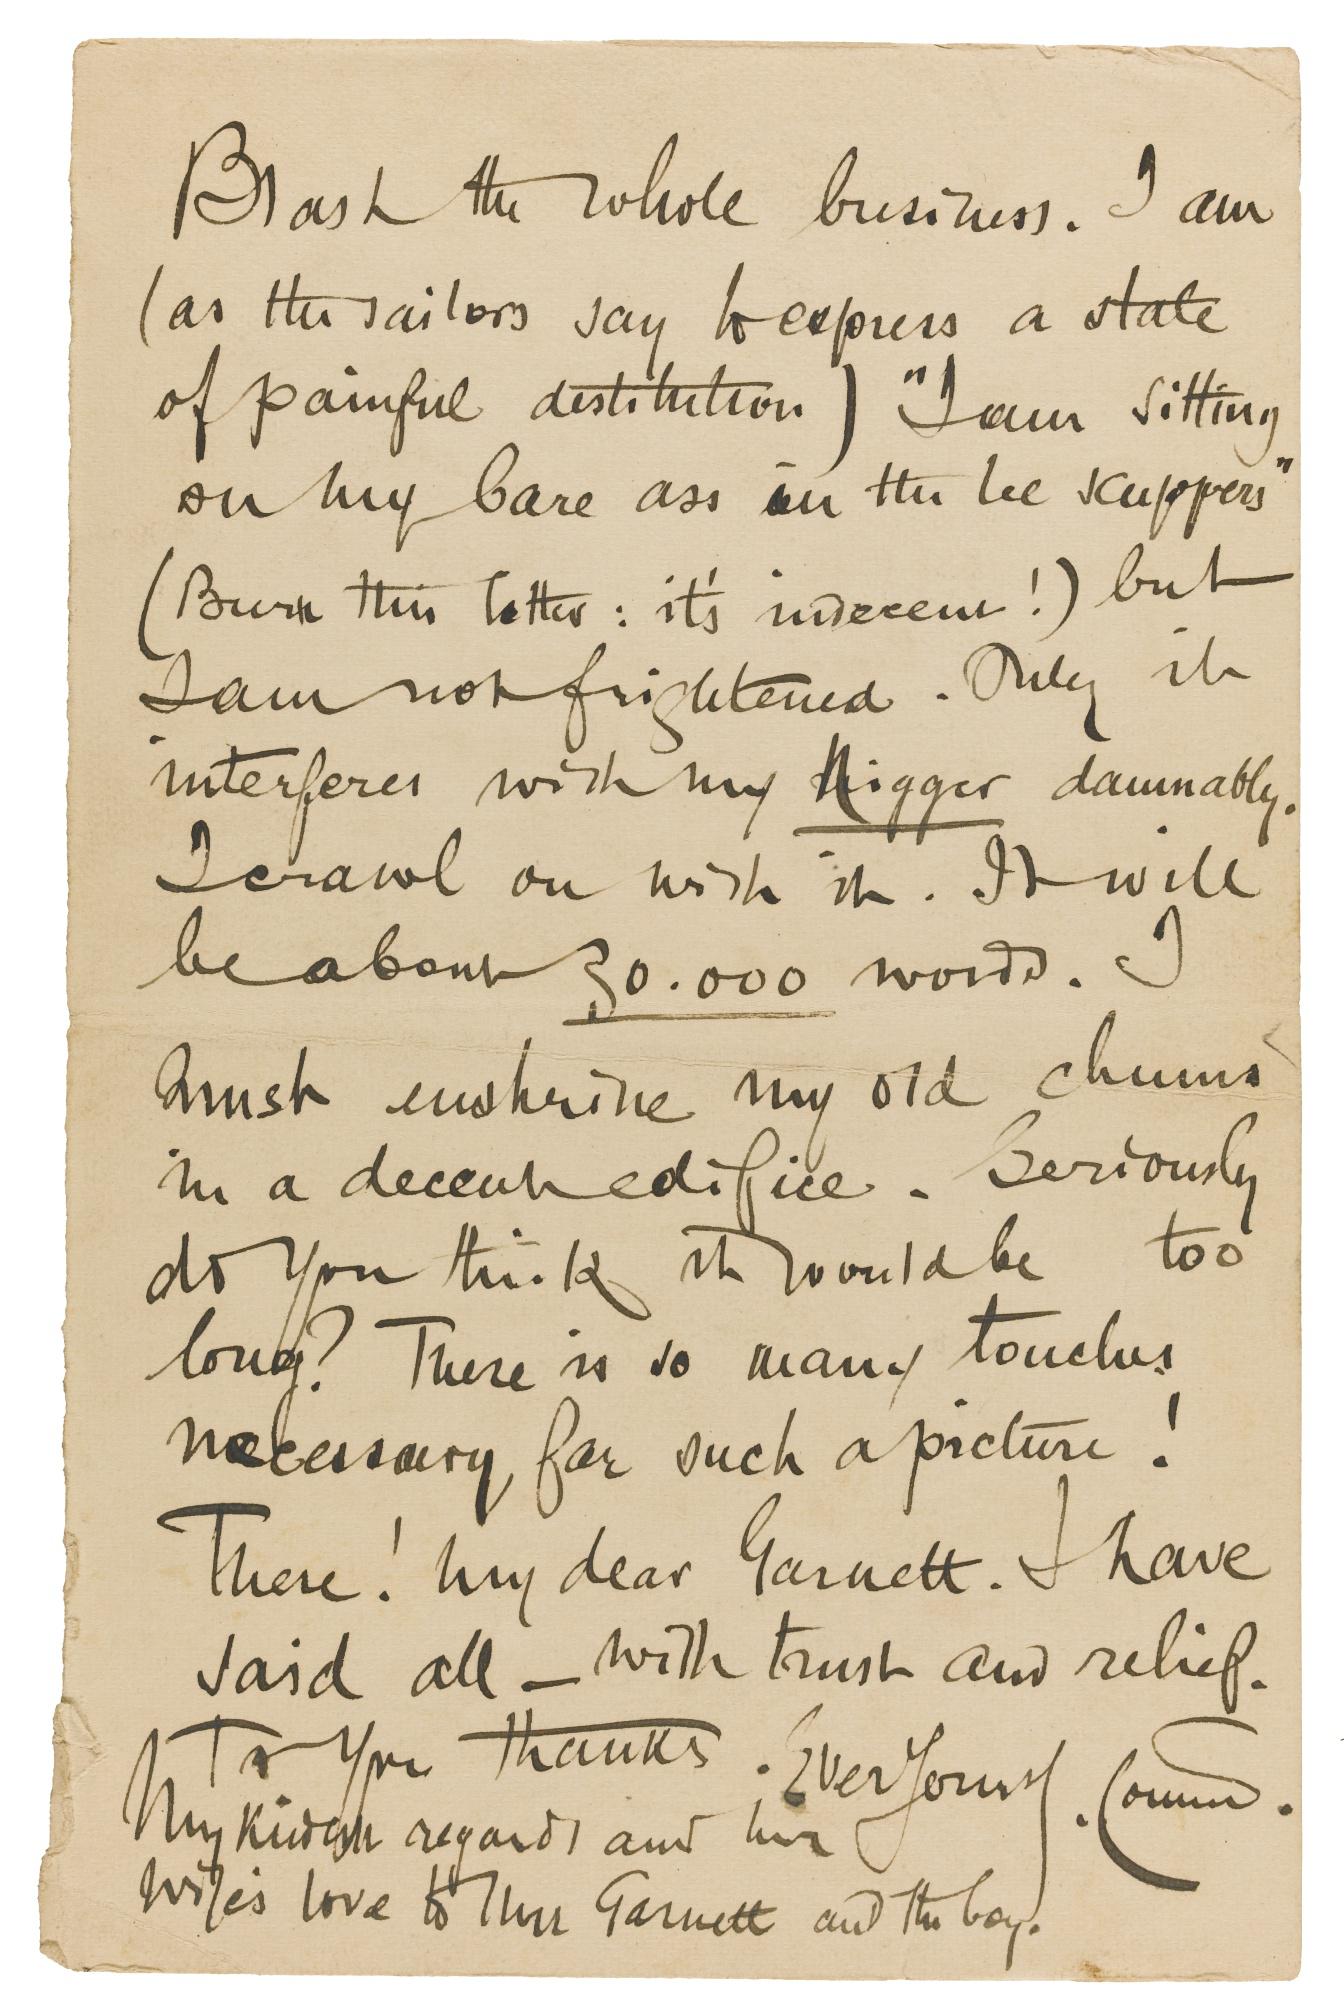 Blast the whole business. I am
(as the sailors say to express a state
of painful destitution) "I am sitting
on my bare ass in the lee scuppers"
(Burn this letter: it's indecent!) but
I am not frightened. Only it
interferes with my Nigger damnably.
I crawl on with it. It will
be about 30.000 words. I
must enshrine my old chums
in a decent edifice. Seriously
do you think it would be too
long? There is so many touches
necessary for such a picture!
There! my dear Garnett. I have
said all – with trust and relief.
To You thanks. Ever Yours J. Conrad.
My kindest regards and my
wife's love to Mrs Garnett and the boy.